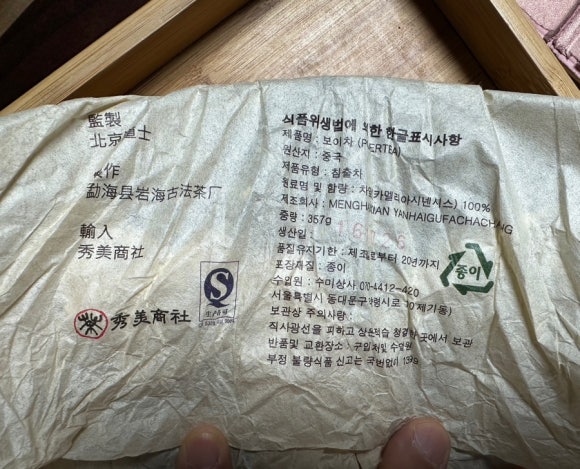 監製
北京道士
作
勐海县岩海古法茶厂
輸入
秀美商社
秀美商社
S
식품위생법에 의한 한글표시사항
제품명 : 보이차 (PUERTEA)
원산지 : 중국
제품유형 : 침출차
원료명 및 함량 : 차잎(카멜리아시넨시스) 100%
제조회사 : MENGHAIXIAN YANHAIGUFACHACHANG
중량 : 357g
생산일 :
품질유지기한 : 제조로부터 20년까지
포장재질 : 종이
종이
수입원 : 수미상사 010-4412-420
서울특별시 동대문구 제기동)
보관상 주의사항 :
직사광선을 피하고 상온의 습 청결한 곳에서 보관
반품및 교환장소 : 구입처및 수입원
부정 불량식품 신고는 국번없이 1399